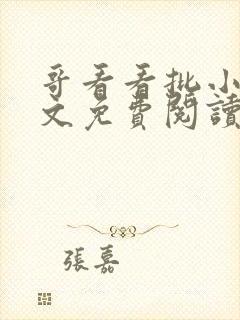 哥看看批小
文免費閱讀
張嘉